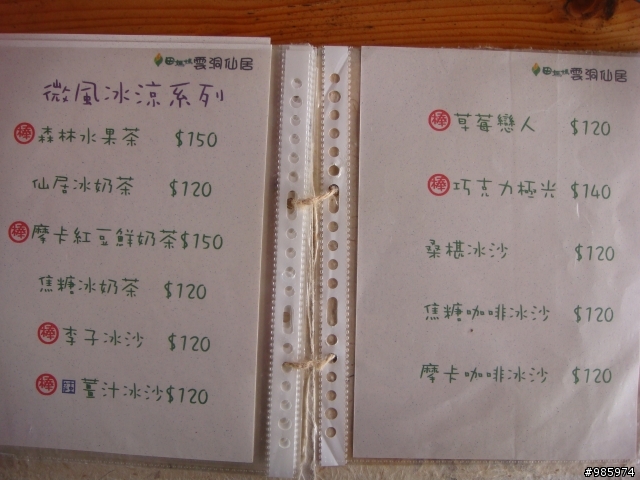 田媽媽 雲洞仙居
微風冰涼系列
棒 森林水果茶 $150
仙居冰奶茶 $120
棒 摩卡紅豆鮮奶茶$150
焦糖冰奶茶 $120
棒 李子冰沙 $120
棒 薑汁冰沙$120
田媽媽 雲洞仙居
棒 草莓戀人 $120
棒 巧克力極光 $140
桑椹冰沙 $120
焦糖咖啡冰沙 $120
摩卡咖啡冰沙 $120
#985974